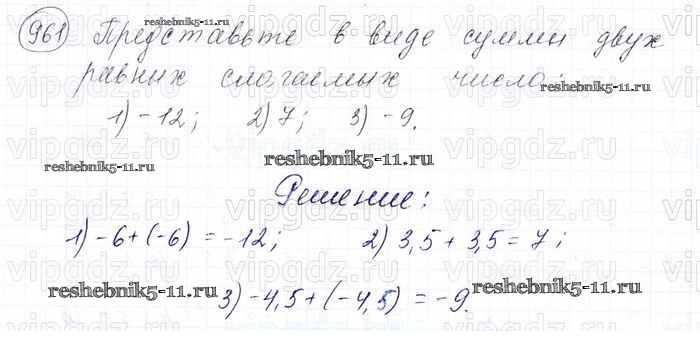 961 Представьте в виде суммы двух
равных слагаемых число:
1) -12; 2) 7; 3) -9.
Решение:
1) -6+(-6) = -12; 2) 3,5+3,5=7;
3) -4,5+(-4,5) = -9.
reshebnik5-11.ru
reshebnik5-11.ru
reshebnik5-11.ru
reshebnik5-11.ru
reshebnik5-11.ru
reshebnik5-11.ru
vipgdz.ru
vipgdz.ru
vipgdz.ru